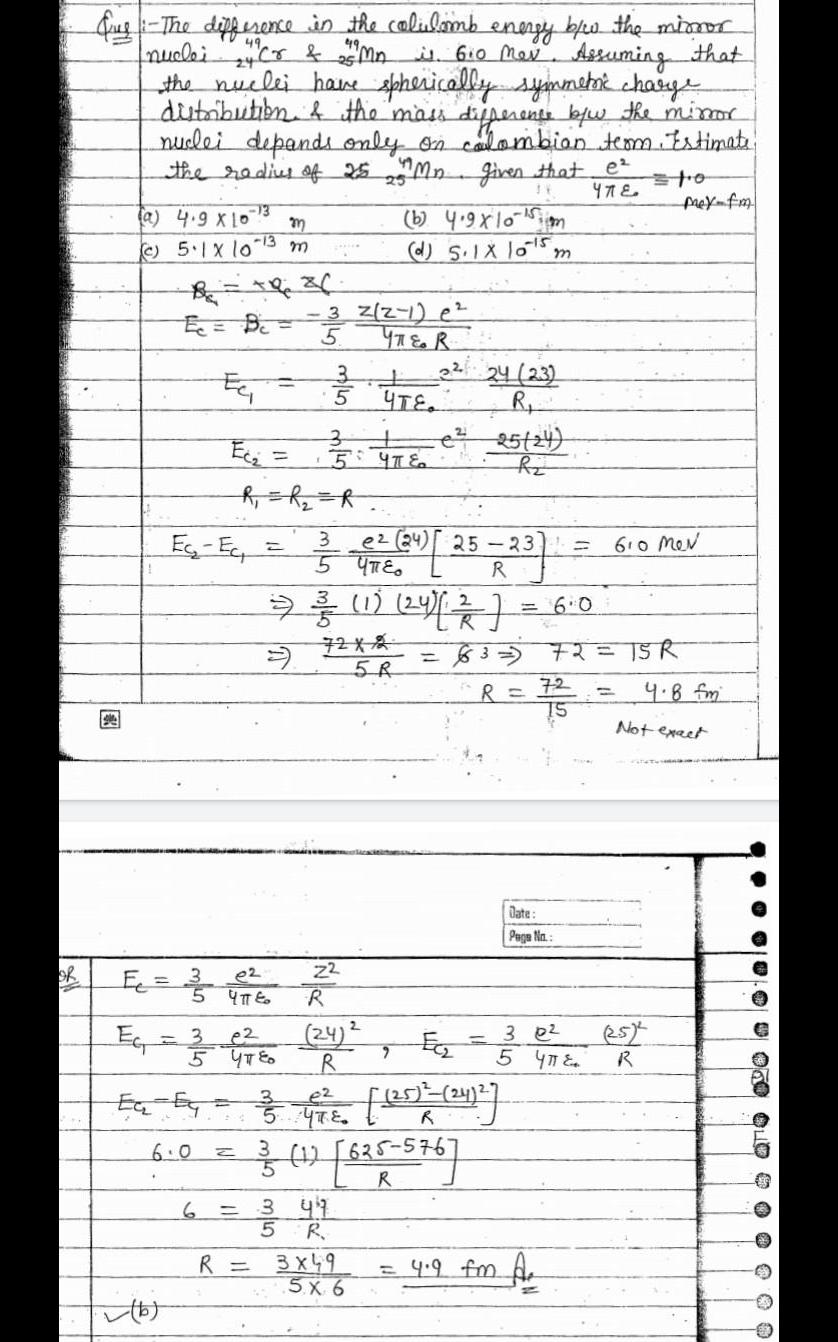 Ques :- The difference in the calulomb energy b/w the mirror
nuclei ⁴⁹₂₄Cr & ⁴⁹₂₅Mn is 6.0 Mev. Assuming that
the nuclei have spherically symmetric charge
distribution & the mass difference b/w the mirror
nuclei depands only on colombian term. Estimate
the radius of 25 ⁴⁹₂₅Mn. Given that e²/4πε₀ = 1.0
MeV-fm
(a) 4.9 × 10⁻¹³ m (b) 4.9 × 10⁻¹⁵ m
(c) 5.1 × 10⁻¹³ m (d) 5.1 × 10⁻¹⁵ m
E_c = B_c = -3/5 Z(Z-1) e²/4πε₀ R
E_c₁ = 3/5 · 1/4πε₀ e² 24(23)/R₁
E_c₂ = 3/5 · 1/4πε₀ e² 25(24)/R₂
R₁ = R₂ = R
E_c₂ - E_c₁ = 3/5 e²(24)/4πε₀ [25 - 23/R] = 6.0 MeV
⇒ 3/5 (1) (24) [2/R] = 6.0
⇒ 72 × 2/5R = 6 3 ⇒ 72 = 15R
R = 72/15 = 4.8 fm
Not exact
Date :
Page No. :
OR E_c = 3/5 e²/4πε₀ Z²/R
E_c₁ = 3/5 e²/4πε₀ (24)²/R , E_c₂ = 3/5 e²/4πε₀ (25)²/R
E_c₂ - E_c₁ = 3/5 e²/4πε₀ [(25)² - (24)²/R]
6.0 = 3/5 (1) [625 - 576/R]
6 = 3/5 49/R
R = 3 × 49/5 × 6 = 4.9 fm
✓(b)